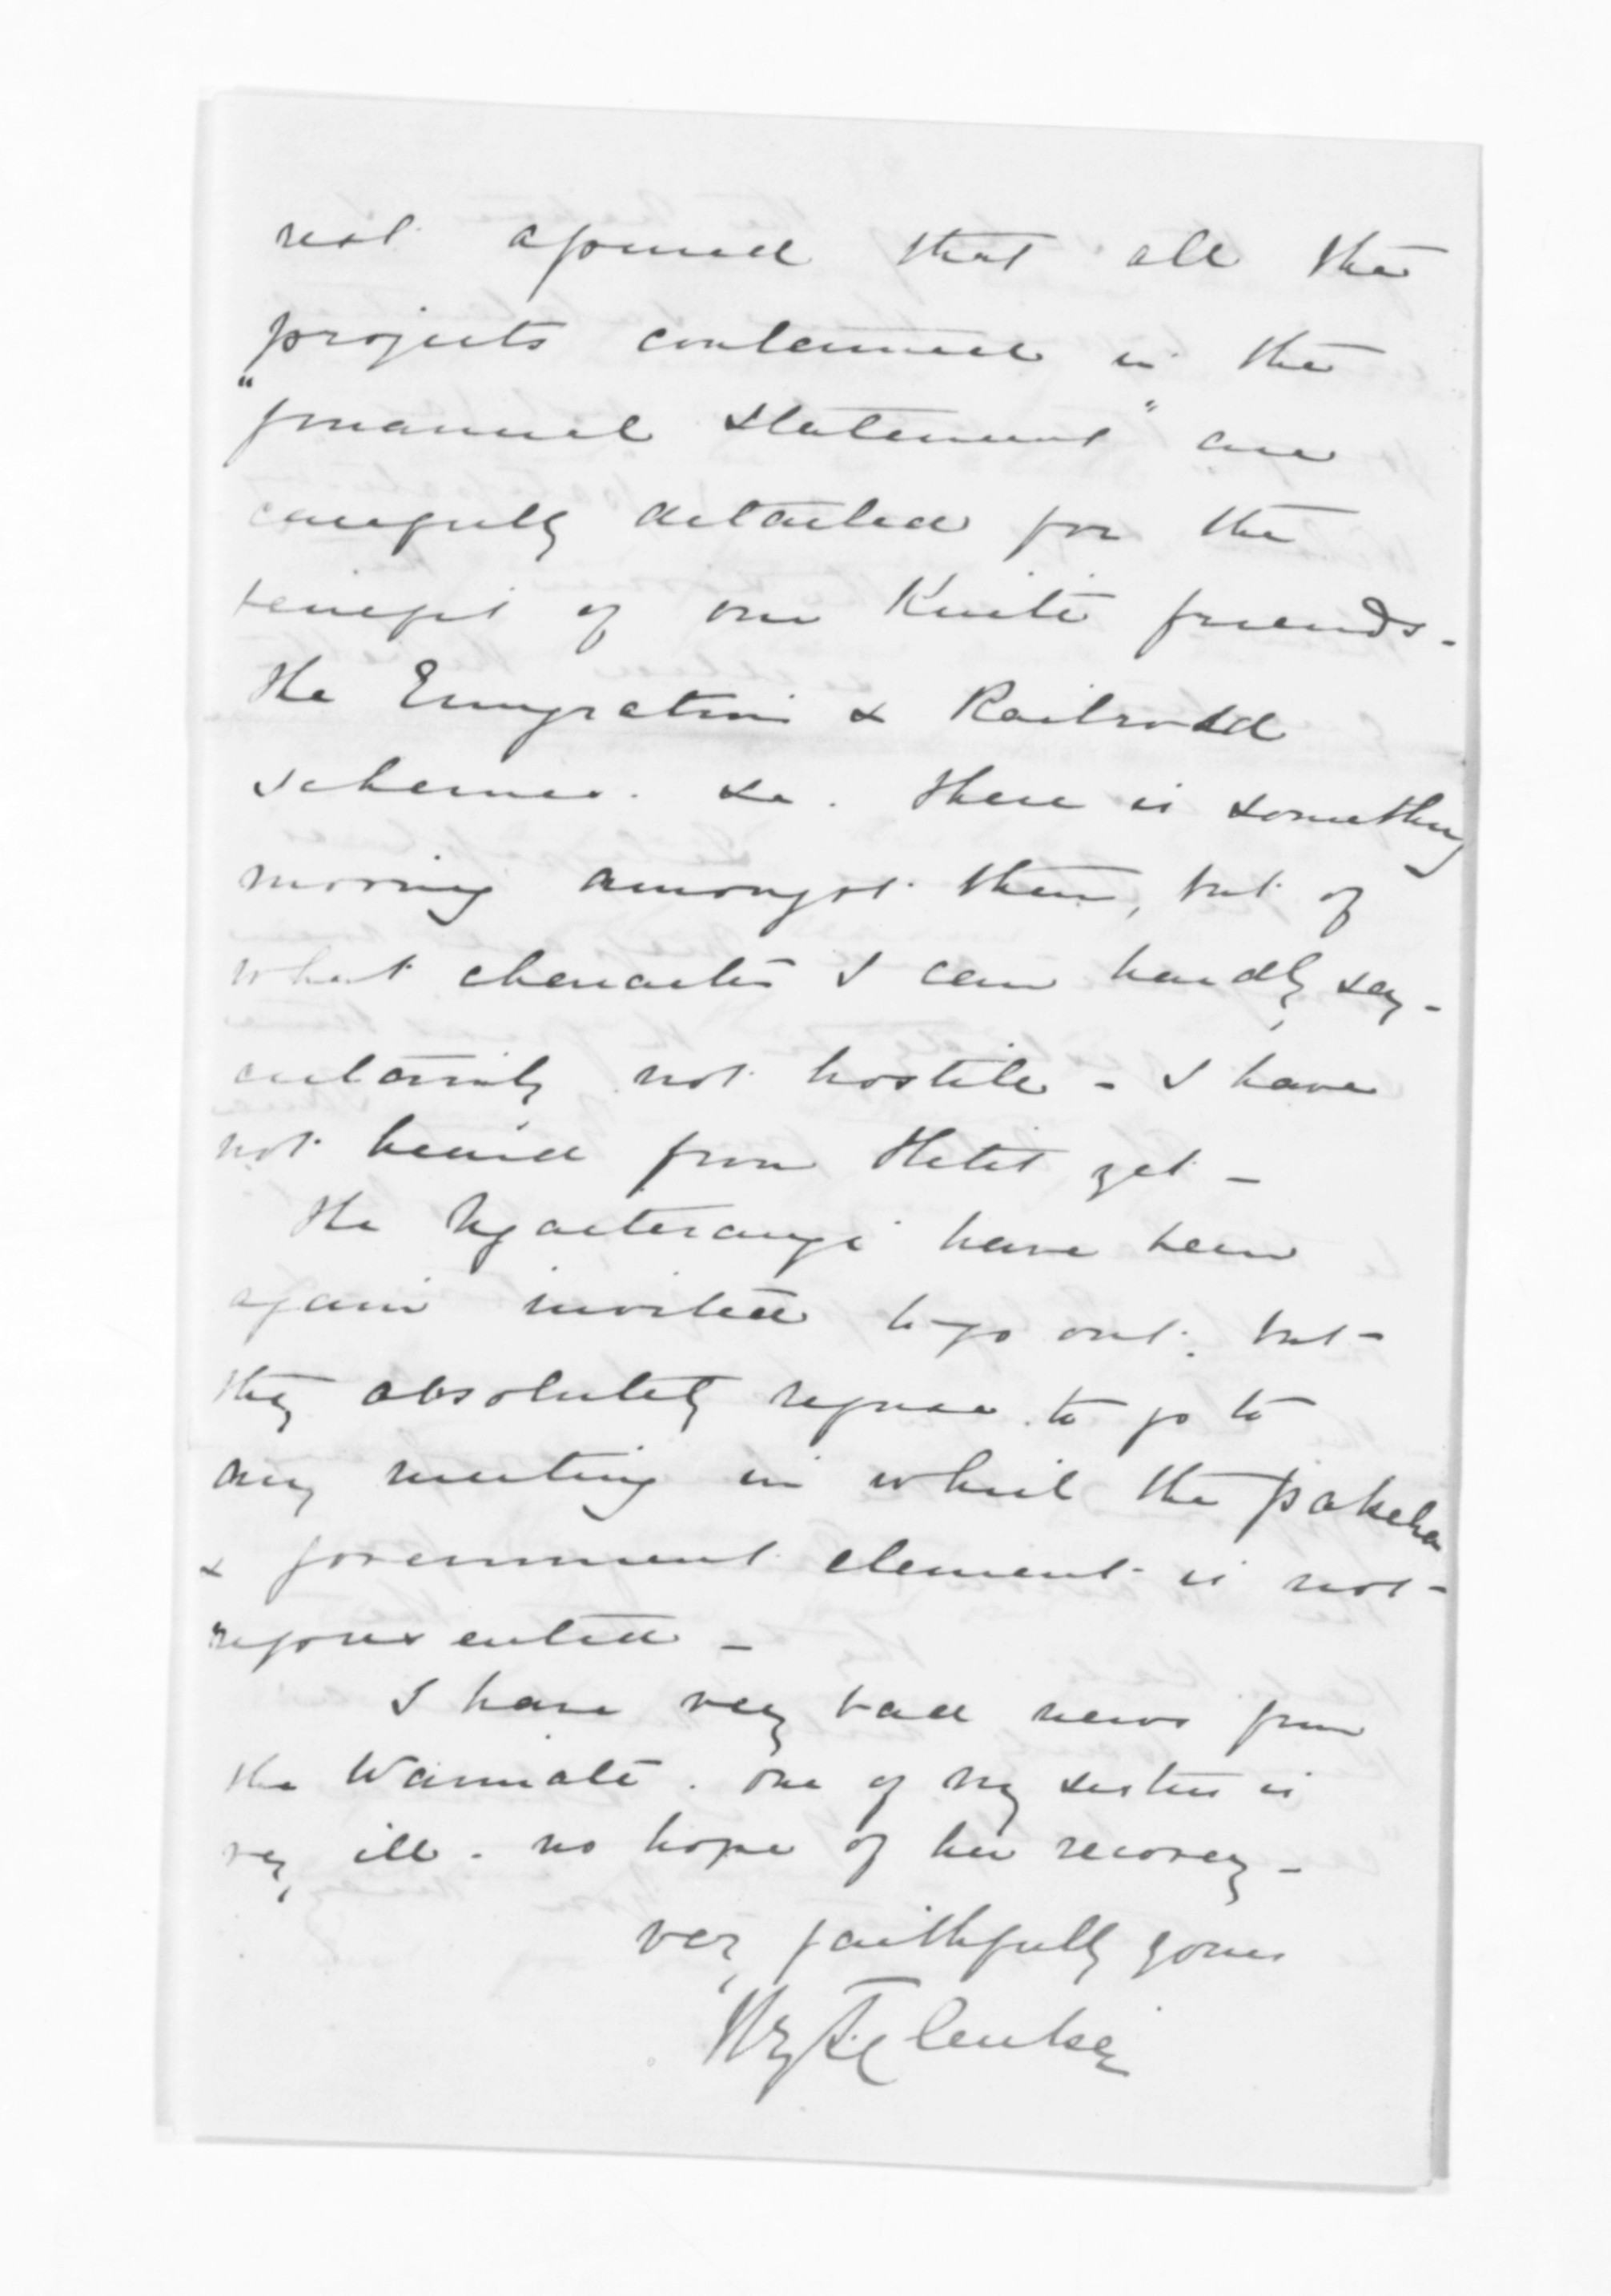 rest assured that all the
projects contained in the
"financial statement" are
carefully detailed for the
benefit of our Kuiti friends -
The Emigration & Railroad
schemes. &c. there is something
moving amongst them, but of
what character I can hardly say -
certainly not hostile - I have
not heard from Hetit yet -
The Ngaiterangi have been
again invited to go out. but
they absolutely refuse to go to
any meeting in which the pakeha
& government element is not
represented -
I have very bad news from
the Waimate. One of my sisters is
very ill. no hope of her recovery -
very faithfully yours
Hy T. Clarke